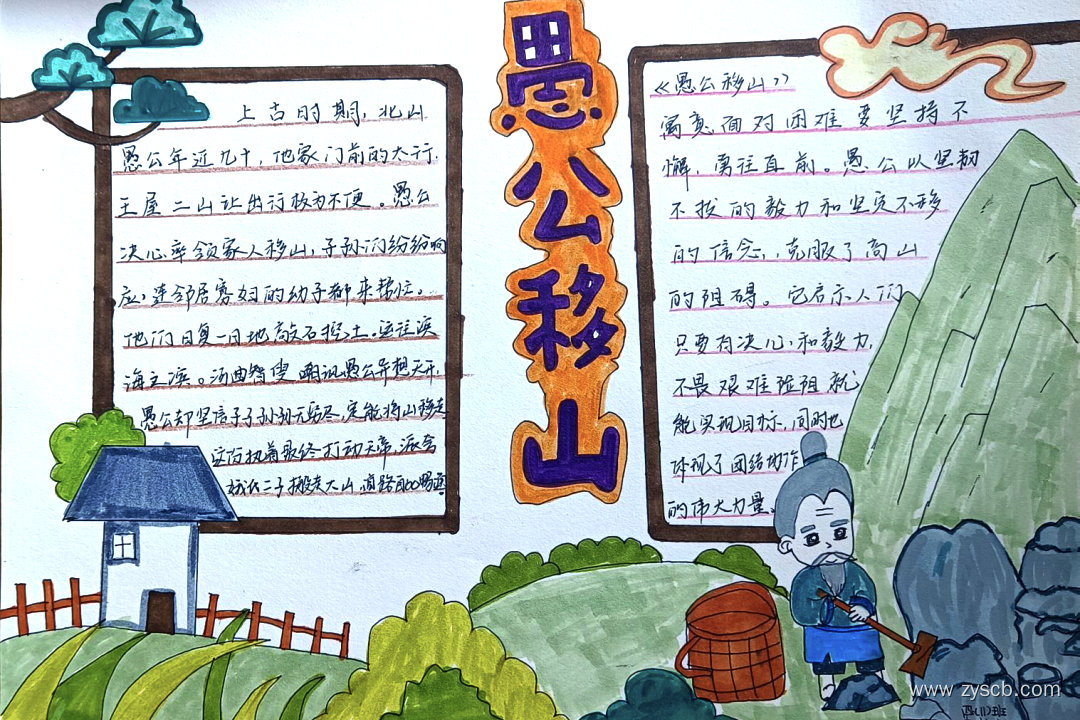 愚公移山
上古时期，北山
愚公年近九十，他家门前的太行，
王屋二山让出行极为不便。愚公
决心率领家人移山，子孙们纷纷响
应，连邻居寡妇的幼子都来帮忙。
他们日复一日地敲石挖土。运往渤
海之滨。河曲智叟嘲讽愚公异想天开，
愚公却坚信子子孙孙无穷尽，定能将山移走
这份执着最终打动天帝，派夸
娥氏二子搬走大山，道路自此畅通
《愚公移山》
寓意面对困难要坚持不
懈，勇往直前。愚公以坚韧
不拔的毅力和坚定不移
的信念，克服了高山
的阻碍。它启示人们
只要有决心和毅力，
不畏艰难险阻就
能实现目标，同时也
体现了团结协作
的伟大力量。
www.zyscb.com